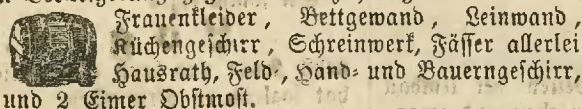 Frauenkleider, Bettgewand, Leinwand,
Küchengeschirr, Schreinwerk, Fässer allerlei
Hausrath, Feld-, Hand- und Bauerngeschirr,
und 2 Eimer Obstmost.